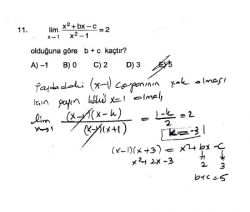 11. lim x→1 x² + bx - c / x² - 1 = 2
olduğuna göre b + c kaçtır?
A) -1 B) 0 C) 2 D) 3 E) 5
Paydadaki (x-1) çarpanının yok olması
için payın kökü x=1 olmalı
lim x→1 (x-1)(x-k) / (x-1)(x+1) = 1-k / 2 = 2
k=-3
(x-1)(x+3) = x² + bx - c
x² + 2x - 3 2 3
b+c=5